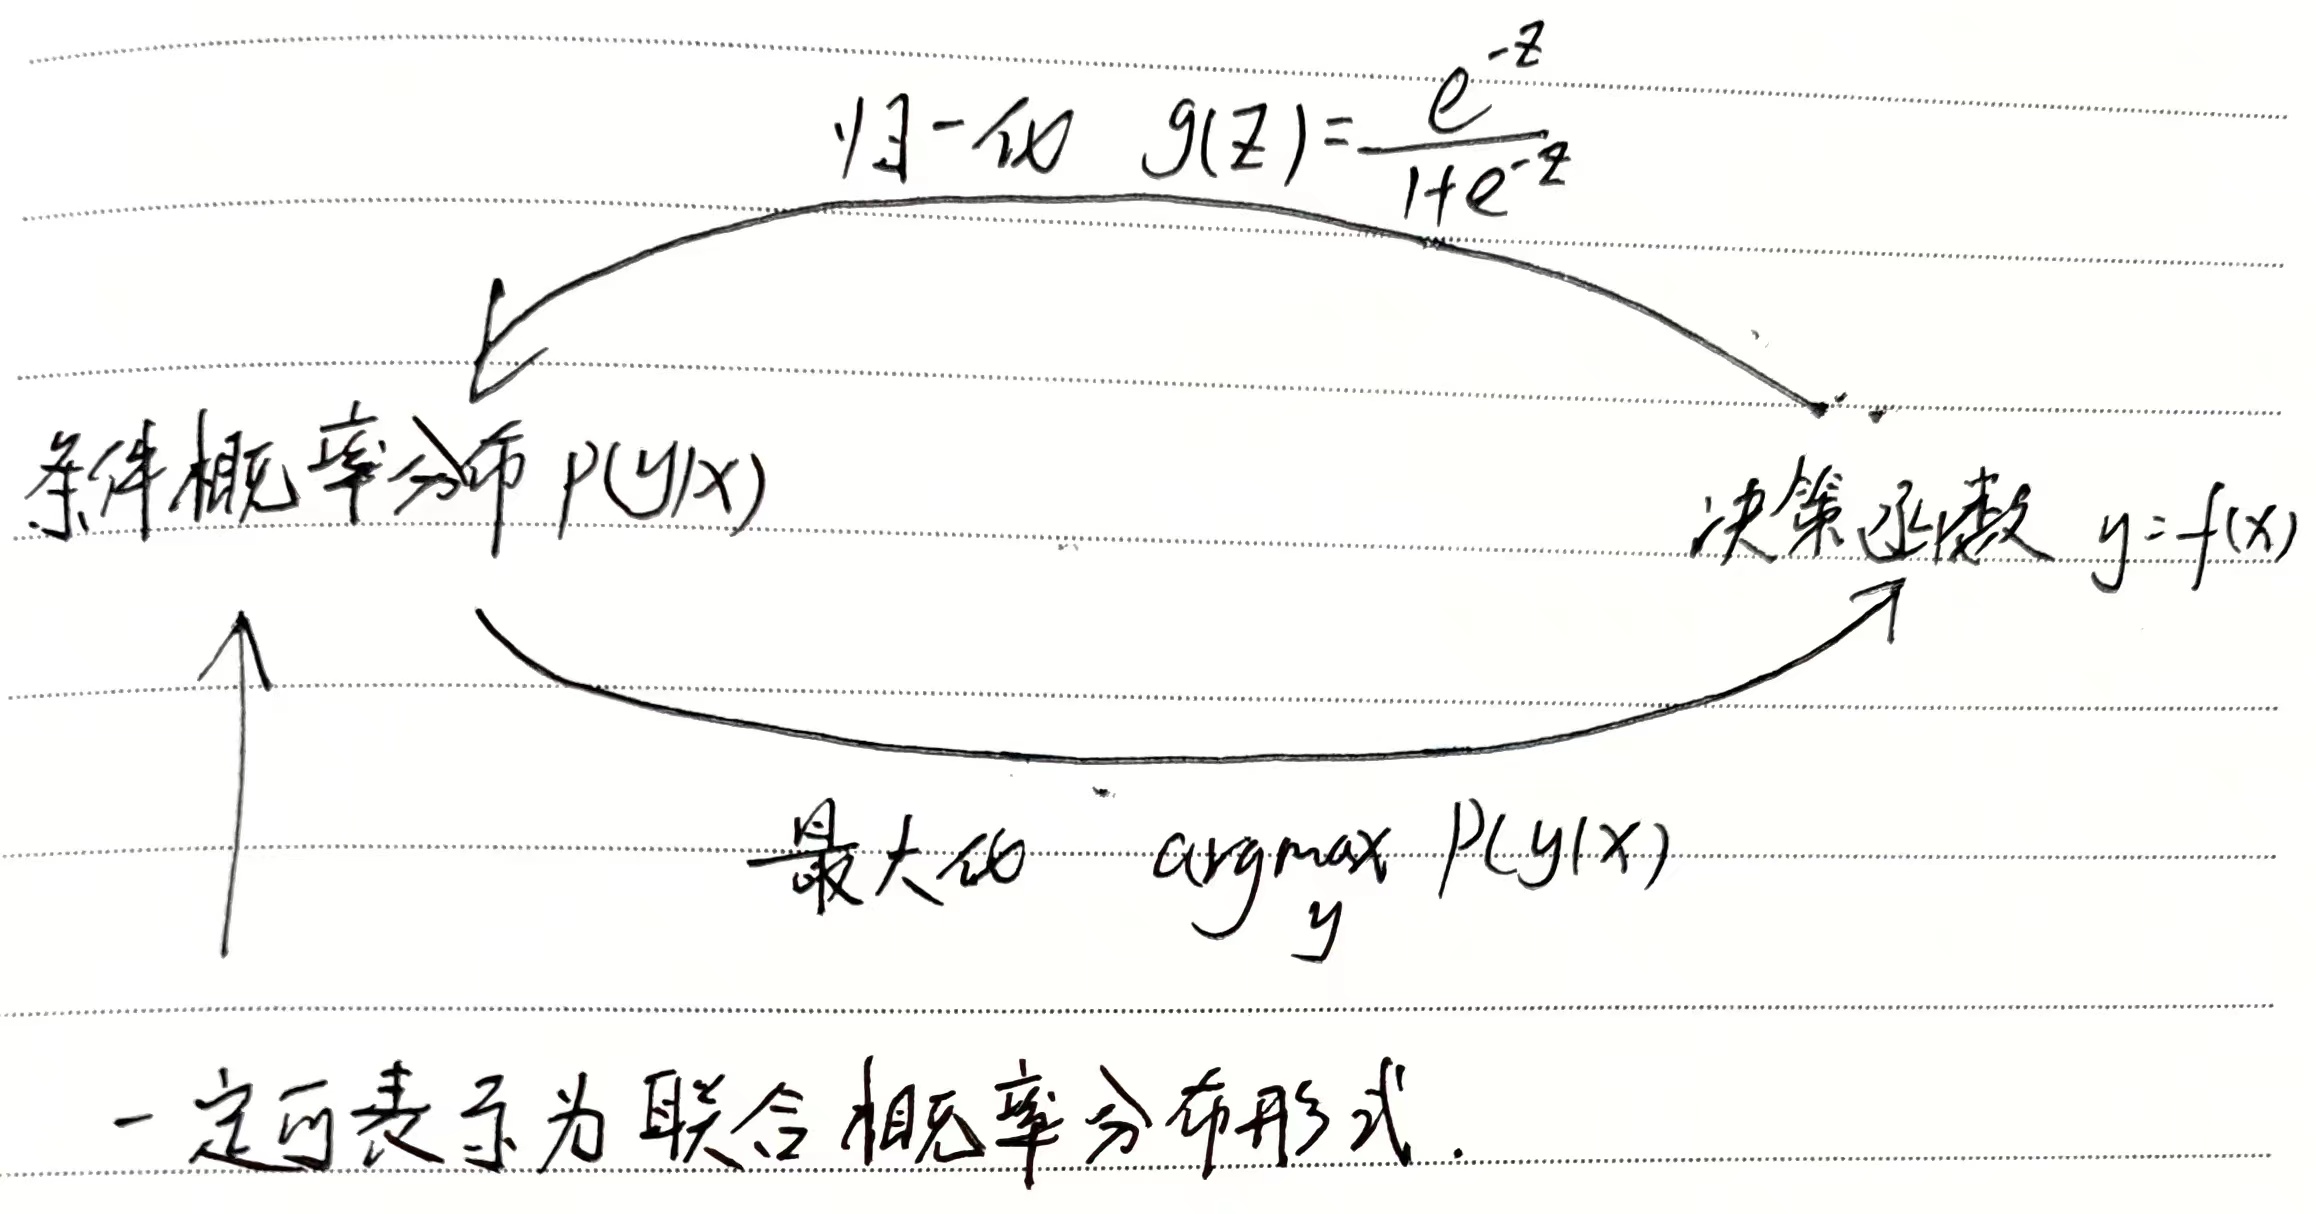 归一化 g(z)=e^{-z}/(1+e^{-z})
条件概率分布 P(y|x)
决策函数 y=f(x)
最大化 argmax_y P(y|x)
一定可表示为联合概率分布形式.